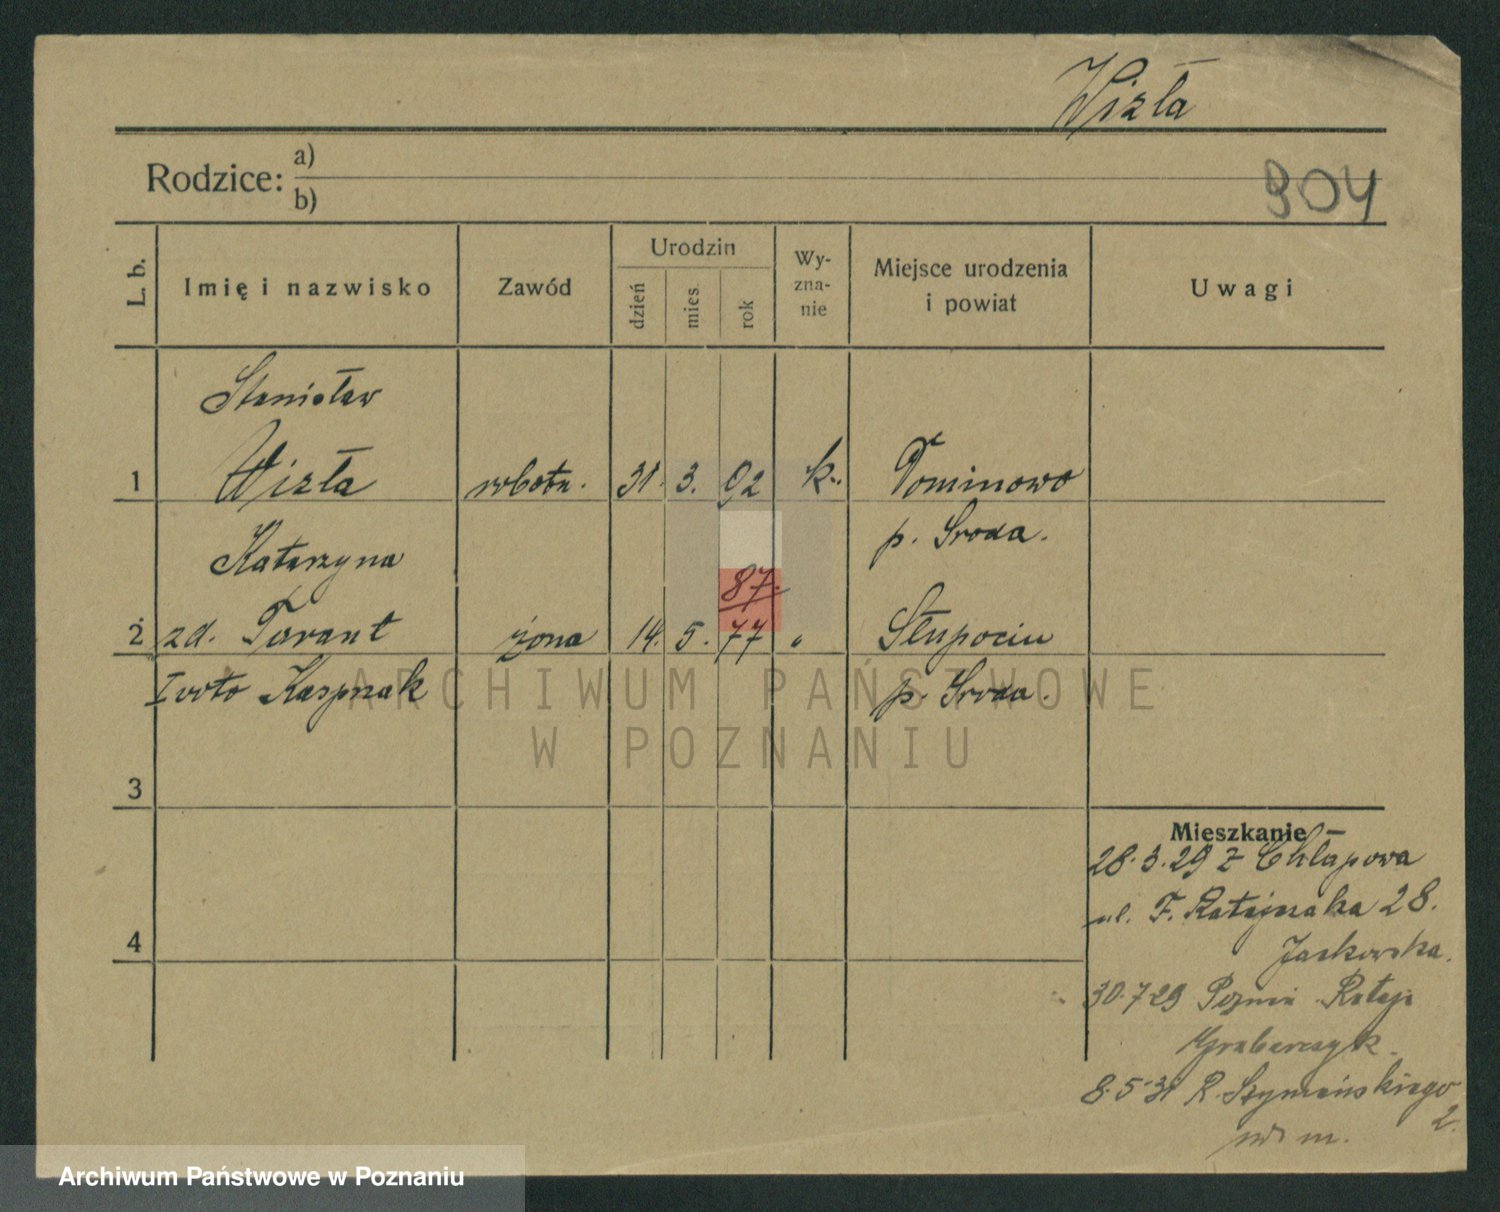 Wizła
Rodzice: a)
b)
904
L. b. Imię i nazwisko Zawód Urodzin dzień mies. rok Wy-zna-nie Miejsce urodzenia i powiat Uwagi
Stanisław
1 Wizła robotn. 31. 3. 92 k. Dominowo
p. Sroda.
Katarzyna
87.
2 zd. Tarant żona 14. 5. 77 „ Słupociu
I voto Kasprzak p. Sroda.
ARCHIWUM PAŃSTWOWE
W POZNANIU
3
Mieszkanie
28.3.29 z Chłapowa
ul. F. Ratajczaka 28.
Jackowska.
4
30.7 29 Poznań Rataje
Graberczyk.
8.5.31 R. Szymańskiego
2.
m.
Archiwum Państwowe w Poznaniu